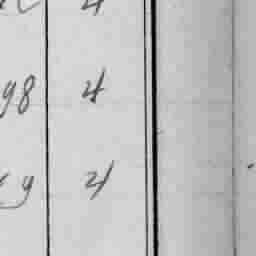 4
98 4
y 4